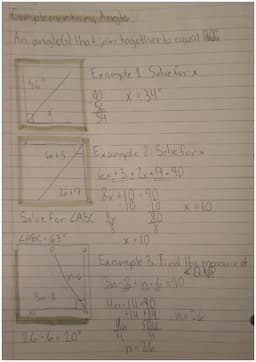 Complementary Angles
An angle(s) that join together to equal 90°
Example 1: Solve for x
56°
x
90
56
34
x = 34°
Example 2: Solve for x
6x+3
2x+7
6x+3+2x+7=90
8x+10=90
10 10
x=10
Solve for ∠ABC
8x 80
8 8
∠ABC=63°
x=10
Example 3: Find the measure of
∠QNP
n-6
4n-14=90
+14 +14
n=26
n=26
26-6=20°